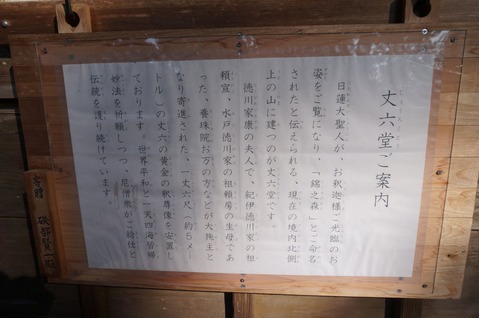 丈六堂ご案内
日蓮大聖人が、お釈迦様ご光臨のお
姿をご覧になり、「錦之森」とご命名
されたと伝えられる、現在の境内北側
上の山に建つのが丈六堂です。
徳川家康の夫人で、紀伊徳川家の祖
頼宣、水戸徳川家の祖頼房の生母であ
った、養珠院お万の方などが大施主と
なり寄進された、一丈六尺（約5メー
トル）の丈六の黄金の釈尊像を安置し
ております。世界平和と一天四海皆帰
妙法を祈願しつつ、尼僧衆がご給仕と
伝統を護り続けています。
寄贈 磯部賢一